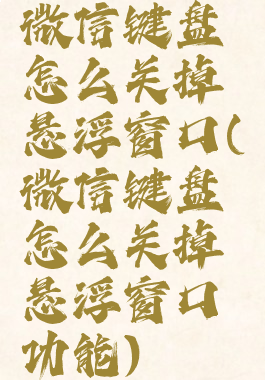 微信键盘
怎么关掉
悬浮窗口(
微信键盘
怎么关掉
悬浮窗口
功能)